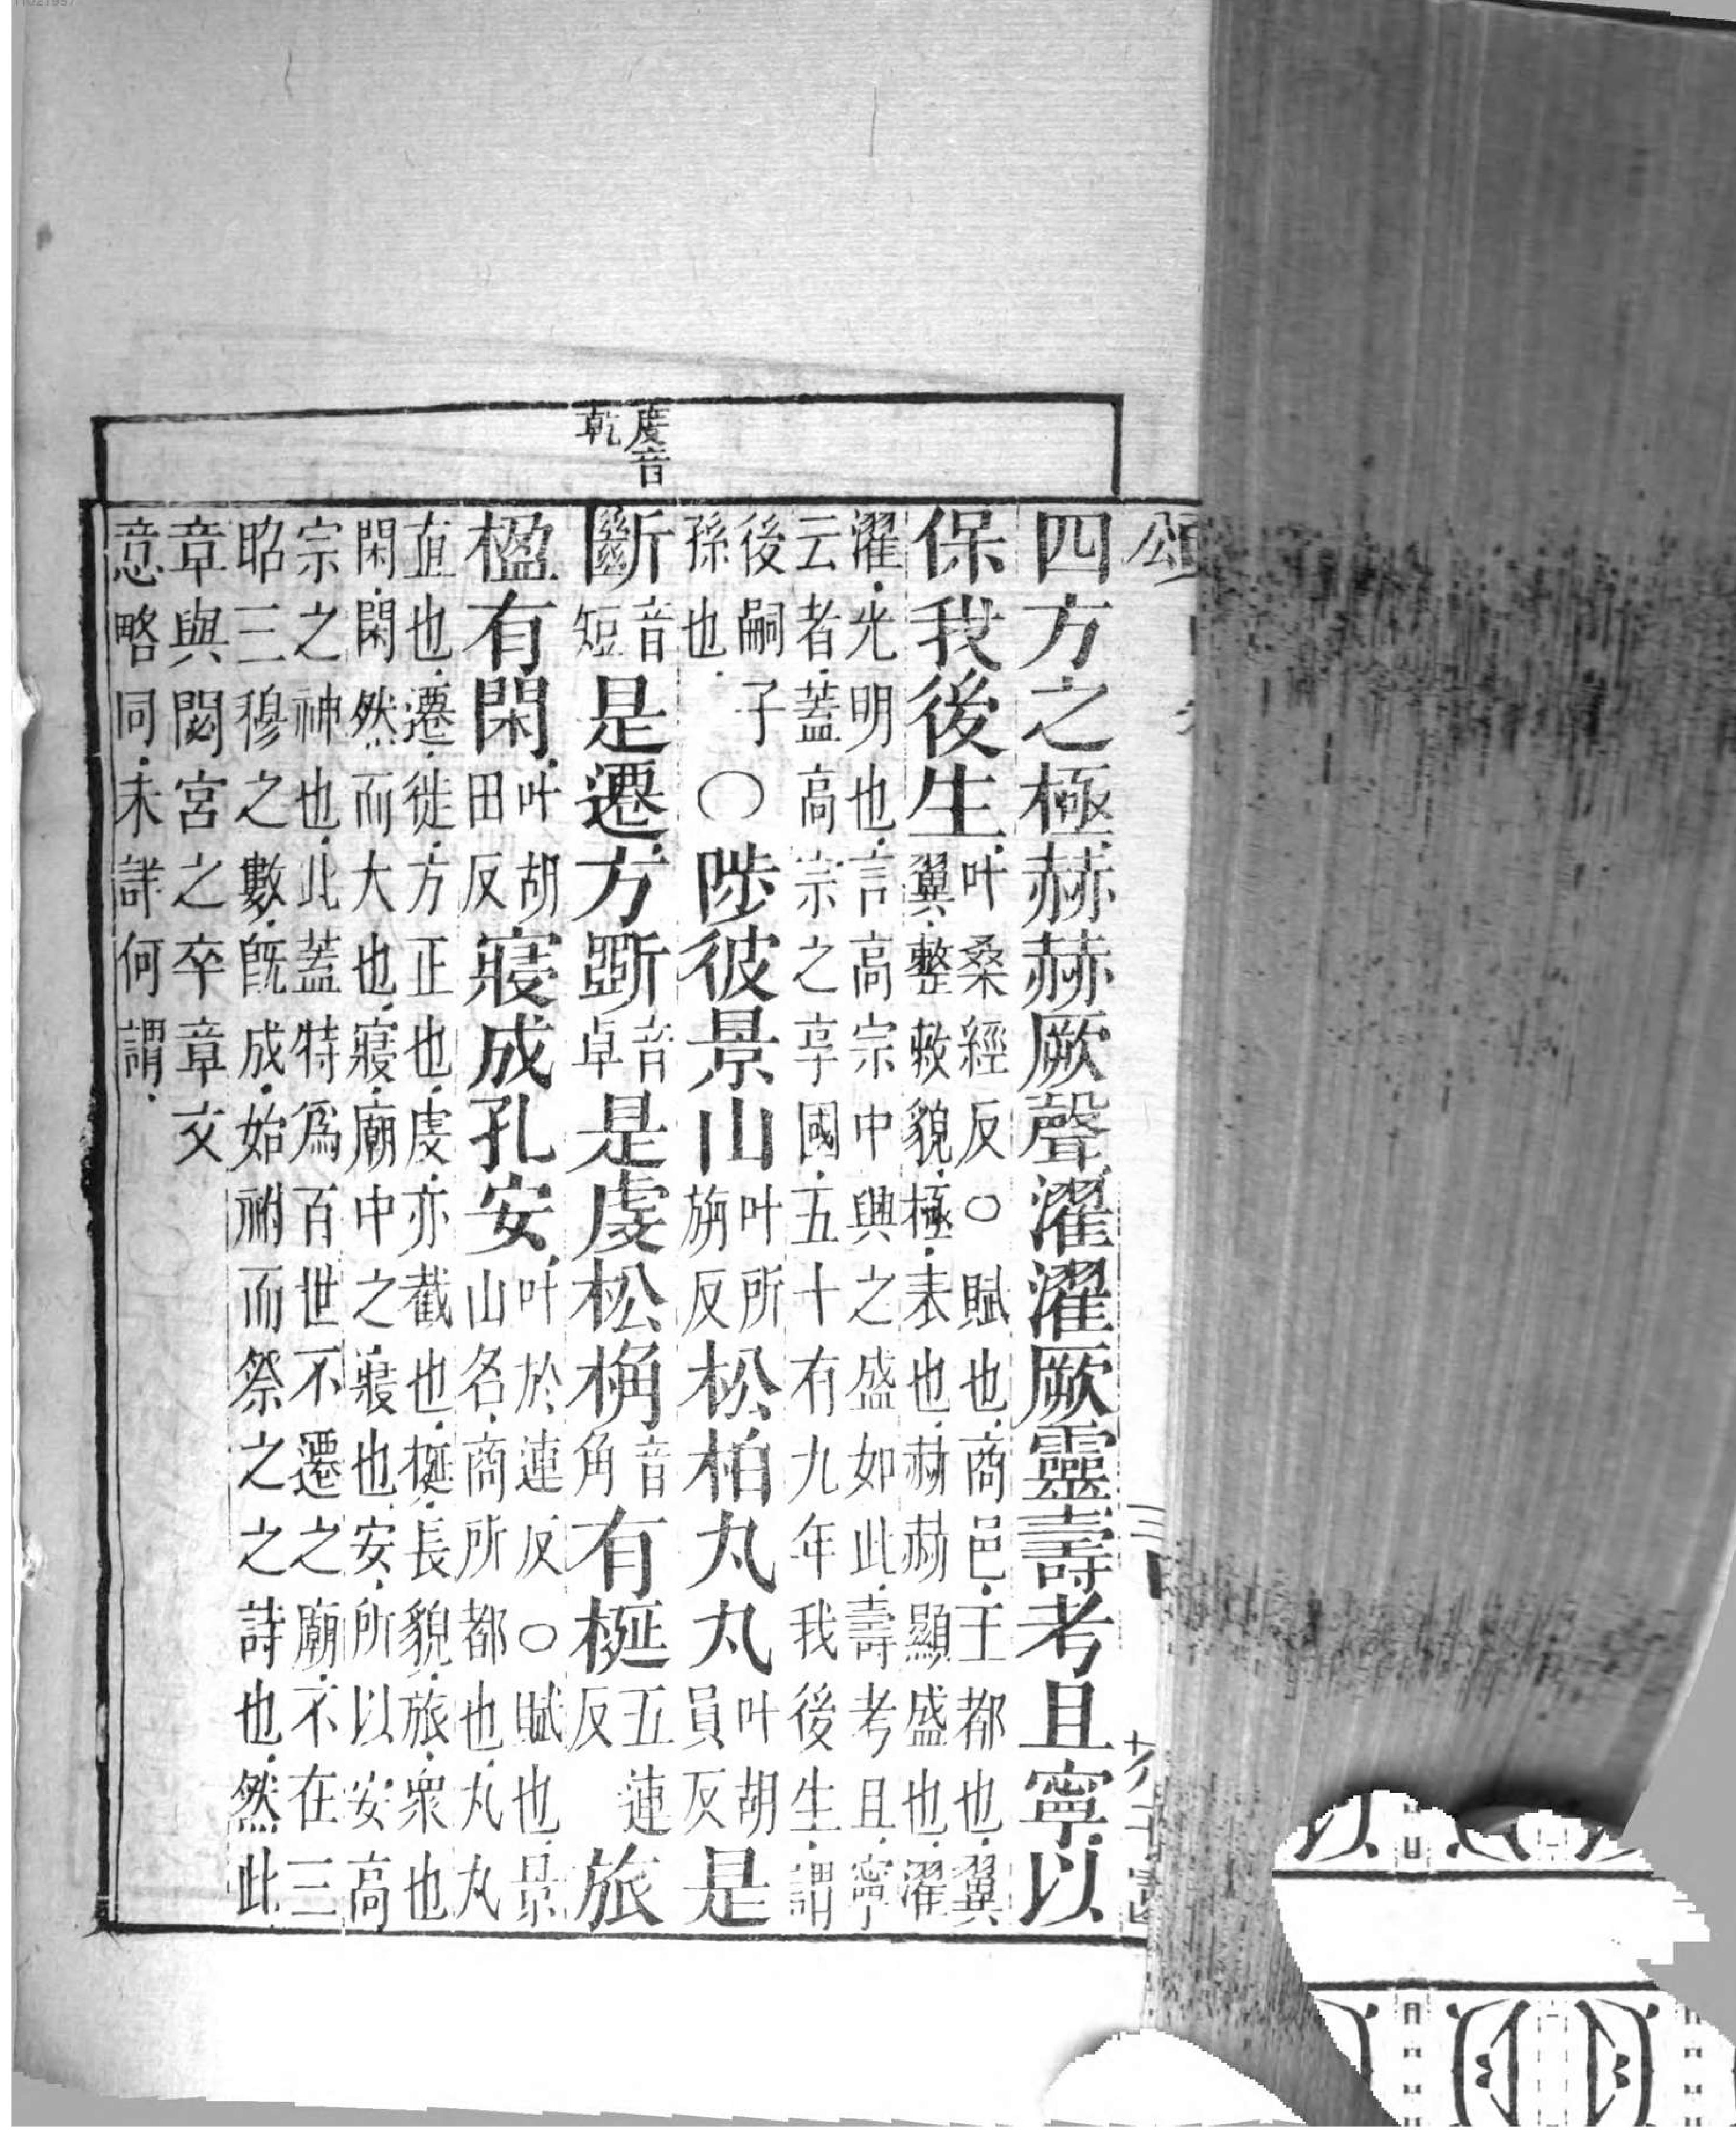 頌
虔音
乾
四方之極赫赫厥聲濯濯厥靈壽考且寧以
保我後生
叶桑經反○賦也商邑王都也翼
翼整敕貌極表也赫赫顯盛也濯
濯光明也言高宗中興之盛如此壽考且寧
云者蓋高宗之享國五十有九年我後生謂
後嗣子
孫也
○陟彼景山
叶所
旃反
松柏丸丸
叶胡
員反
是
斷
音
短
是遷方斲
音
卓
是虔松桷
音
角
有梴
五連
反
旅
楹有閑
叶胡
田反
寢成孔安
叶於連反○賦也景
山名商所都也丸丸
直也遷徙方正也虔亦截也梴長貌旅衆也
閑閑然而大也寢廟中之寢也安所以安高
宗之神也此蓋特爲百世不遷之廟不在三
昭三穆之數旣成始祔而祭之之詩也然此
章與閟宮之卒章文
意略同未詳何謂